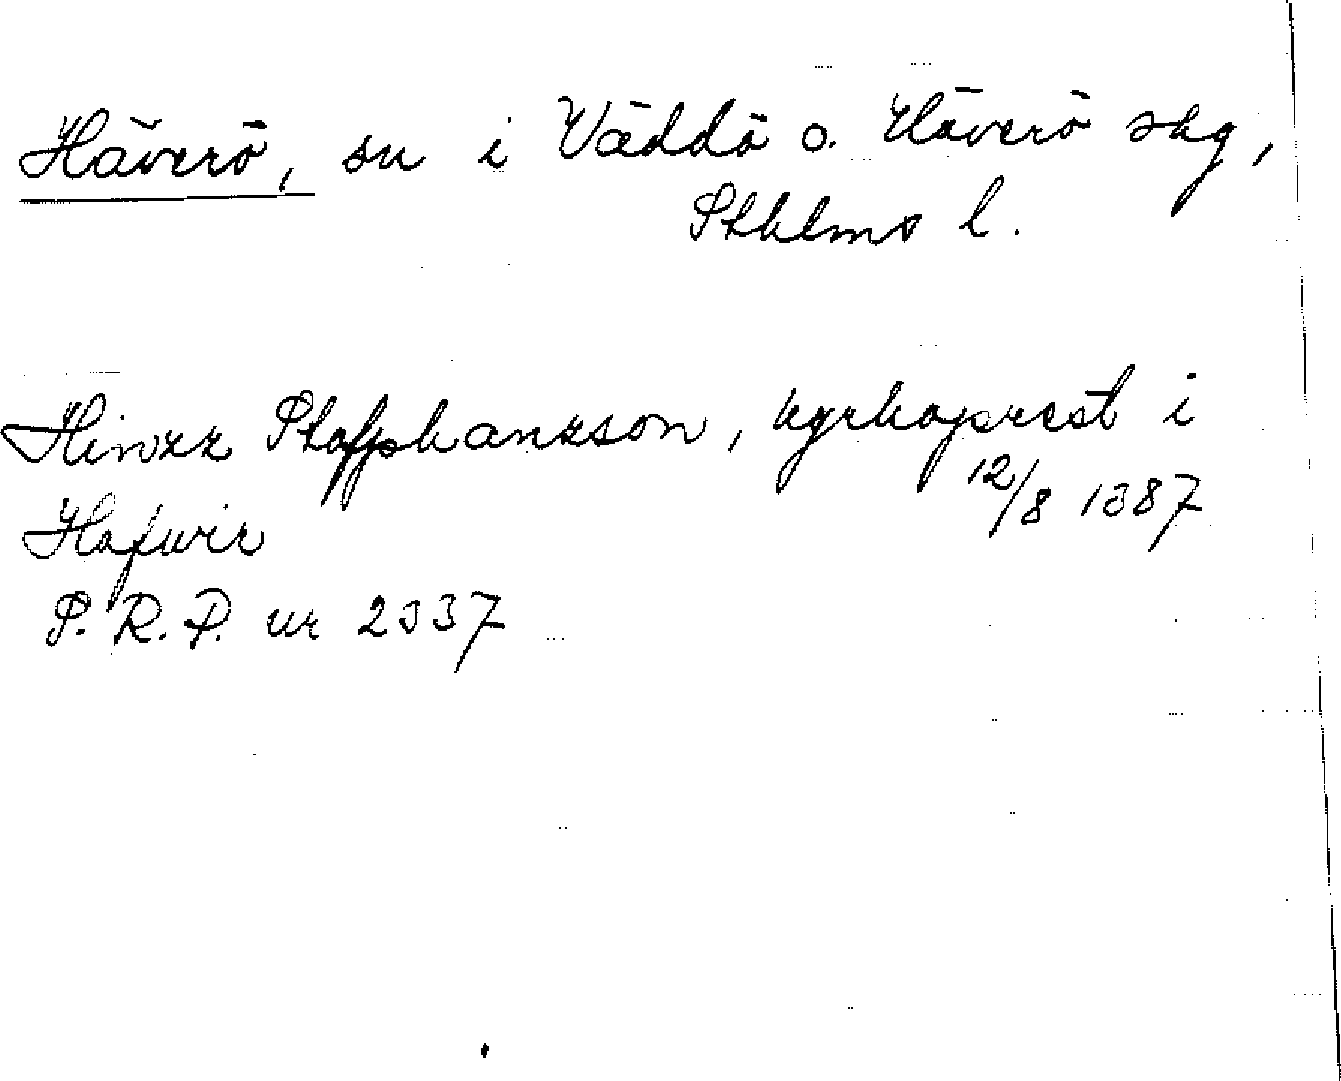 Häverö, sn i Väddö o. Häverö skg,
Sthlms l.
Hinzz Staffhanzson, kyrkoprest i
Hafwir 12/8 1387
P. R. P. nr 2337